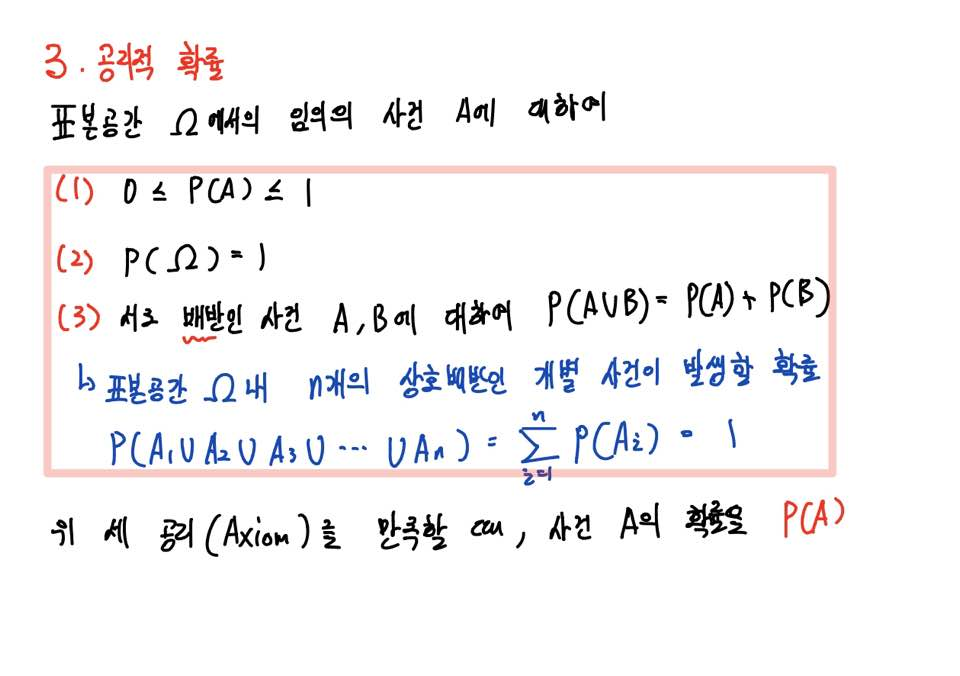 3. 공리적 확률
표본공간 Ω에서의 임의의 사건 A에 대하여
(1) 0 ≤ P(A) ≤ 1
(2) P(Ω) = 1
(3) 서로 배반인 사건 A, B에 대하여 P(A∪B) = P(A) + P(B)
↳ 표본공간 Ω 내 n개의 상호배반인 개별 사건이 발생할 확률
P(A₁∪A₂∪A₃∪ ⋯ ∪Aₙ) = ∑ⁿᵢ₌₁ P(Aᵢ) = 1
위 세 공리(Axiom)를 만족할 때, 사건 A의 확률을 P(A)